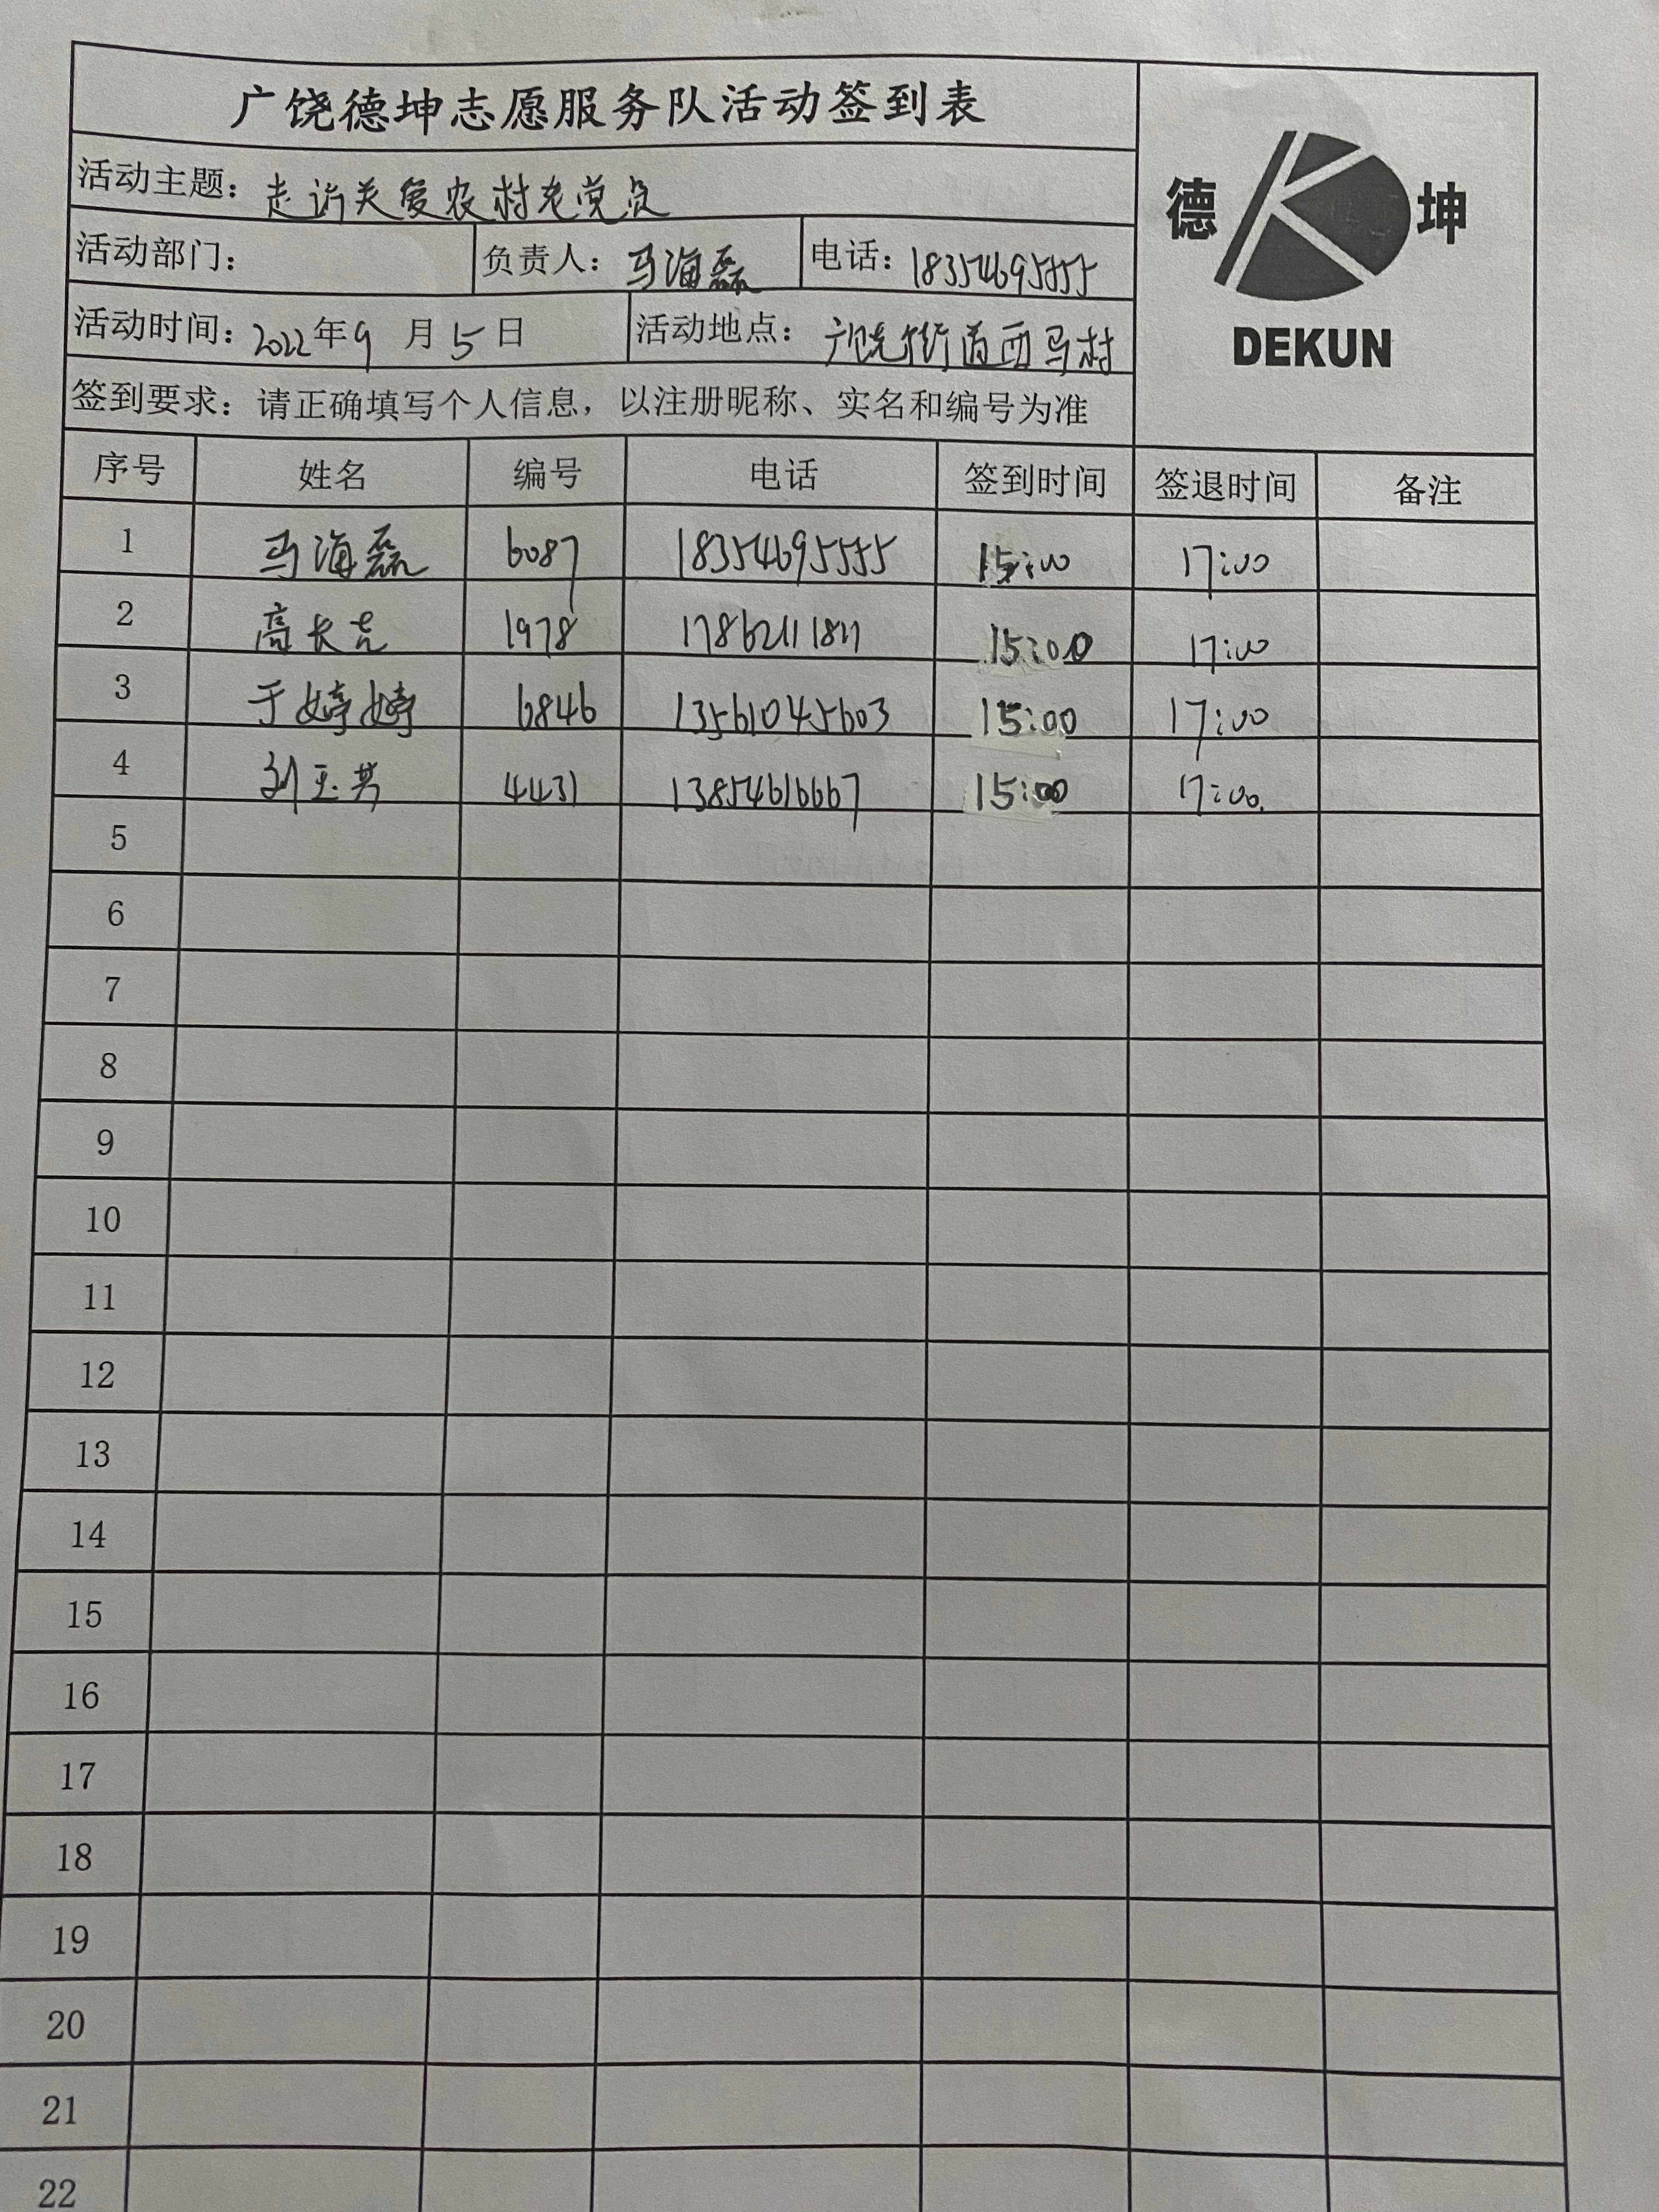 广饶德坤志愿服务队活动签到表
德 坤
DEKUN
活动主题：走访关爱农村老党员
活动部门： 负责人：马海磊 电话：18354695555
活动时间：2022年9月5日 活动地点：广饶街道西马村
签到要求：请正确填写个人信息，以注册昵称、实名和编号为准
序号 姓名 编号 电话 签到时间 签退时间 备注
1 马海磊 6087 18354695555 15:00 17:00
2 高长吉 1978 17:00 15:00
3 于婷婷 6846 13561045603 15:00 17:00
4 刘玉芳 4431 13854616667 15:00 17:00
5
6
7
8
9
10
11
12
13
14
15
16
17
18
19
20
21
22